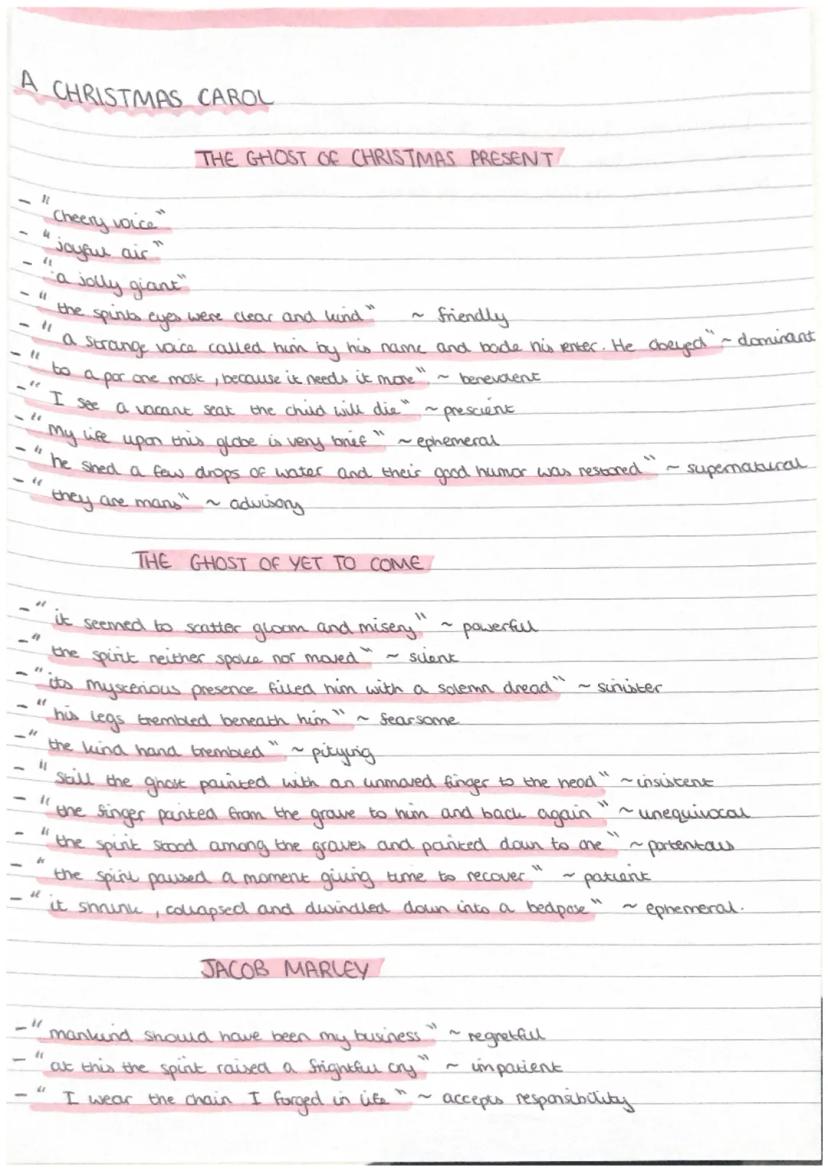 A CHRISTMAS CAROL
THE GHOST OF CHRISTMAS PRESENT
- "cheery voice"
- "joyful air"
- "a jolly giant"
- "the spirits eyes were clear and kind" ~ friendly
- "a strange voice called him by his name and bade his enter. He obeyed" ~ dominant
- "to a por one most, because it needs it more" ~ benevolent
- "I see a vacant seat the child will die" ~ prescient
- "My life upon this globe is very brief" ~ ephemeral
- "he shed a few drops of water and their good humor was restored" ~ supernatural
- "they are mans" ~ advisory
THE GHOST OF YET TO COME
- "it seemed to scatter gloom and misery" ~ powerful
- "the spirit neither spoke nor moved" ~ silent
- "its mysterious presence filled him with a solemn dread" ~ sinister
- "his legs trembled beneath him" ~ fearsome
- "the kind hand trembled" ~ pitying
- "Still the ghost pointed with an unmoved finger to the head" ~ insistent
- "the finger pointed from the grave to him and back again" ~ unequivocal
- "the spirit stood among the graves and pointed down to one" ~ portentous
- "the spirit paused a moment giving time to recover" ~ patient
- "it shrunk, collapsed and dwindled down into a bedpose" ~ ephemeral.
JACOB MARLEY
- "mankind should have been my business" ~ regretful
- "at this the spirit raised a frightful cry" ~ impatient
- "I wear the chain I forged in life" ~ accepts responsibility